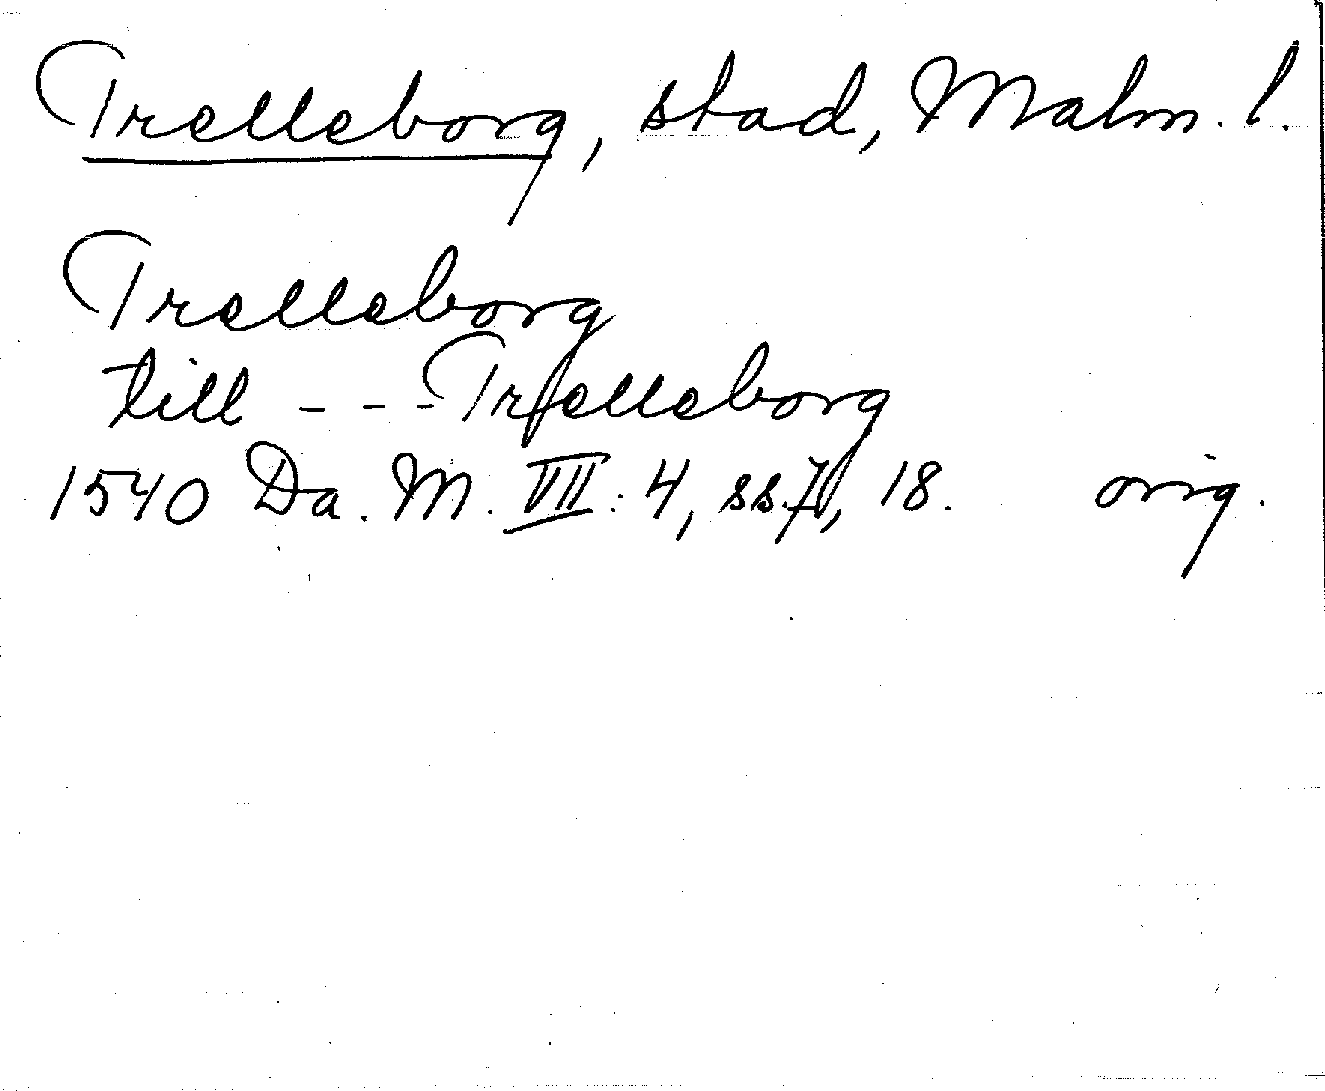 Trelleborg, stad, Malm. l.
Trelleborg
till - - - Trelleborg
1540 Da. M. VII: 4, ss. 7, 18. orig.